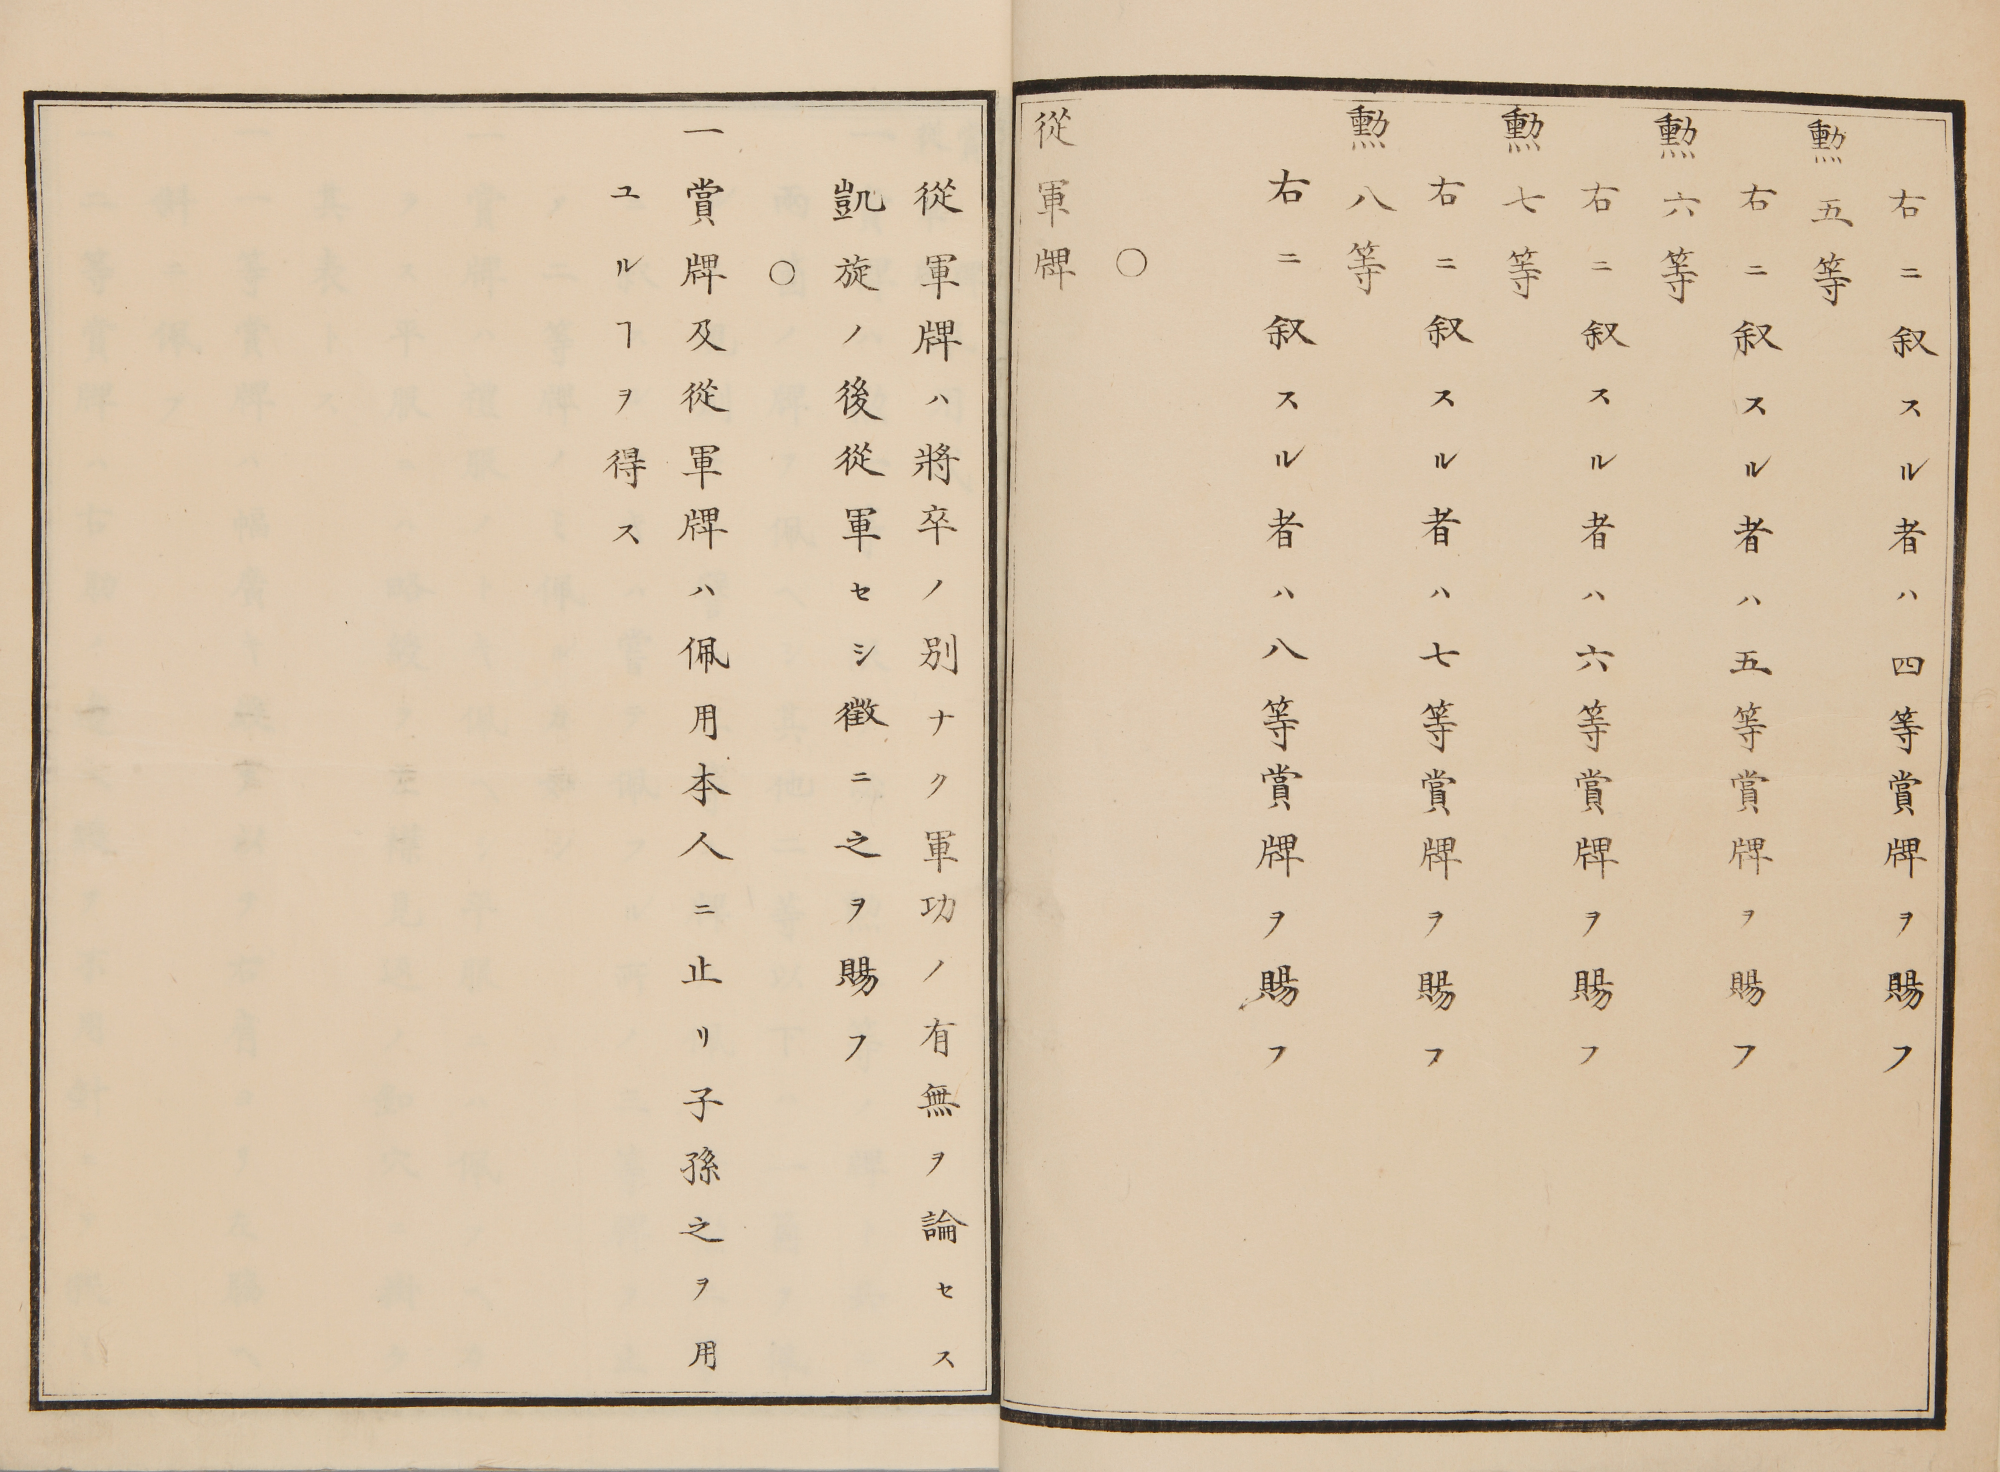 右ニ叙スル者ハ四等賞牌ヲ賜フ
勲五等
右ニ叙スル者ハ五等賞牌ヲ賜フ
勲六等
右ニ叙スル者ハ六等賞牌ヲ賜フ
勲七等
右ニ叙スル者ハ七等賞牌ヲ賜フ
勲八等
右ニ叙スル者ハ八等賞牌ヲ賜フ
〇
從軍牌
從軍牌ハ將卒ノ別ナク軍功ノ有無ヲ論セス
凱旋ノ後從軍セシ徴ニ之ヲ賜フ
〇
一賞牌及從軍牌ハ佩用本人ニ止リ子孫之ヲ用
ユルヿヲ得ス